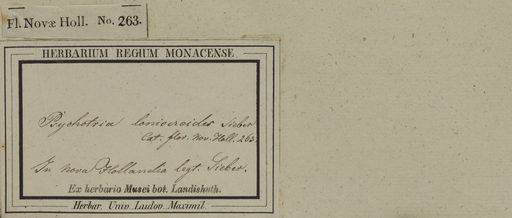 Fl. Novæ Holl. No. 263.
HERBARIUM REGIUM MONACENSE
Psychotria loniceroides Sieber
Cat. flor. nov. Holl. 263.
In nova Hollandia legt. Sieber.
Ex herbario Musei bot. Landishuth.
Herbar. Univ. Ludov. Maximil.